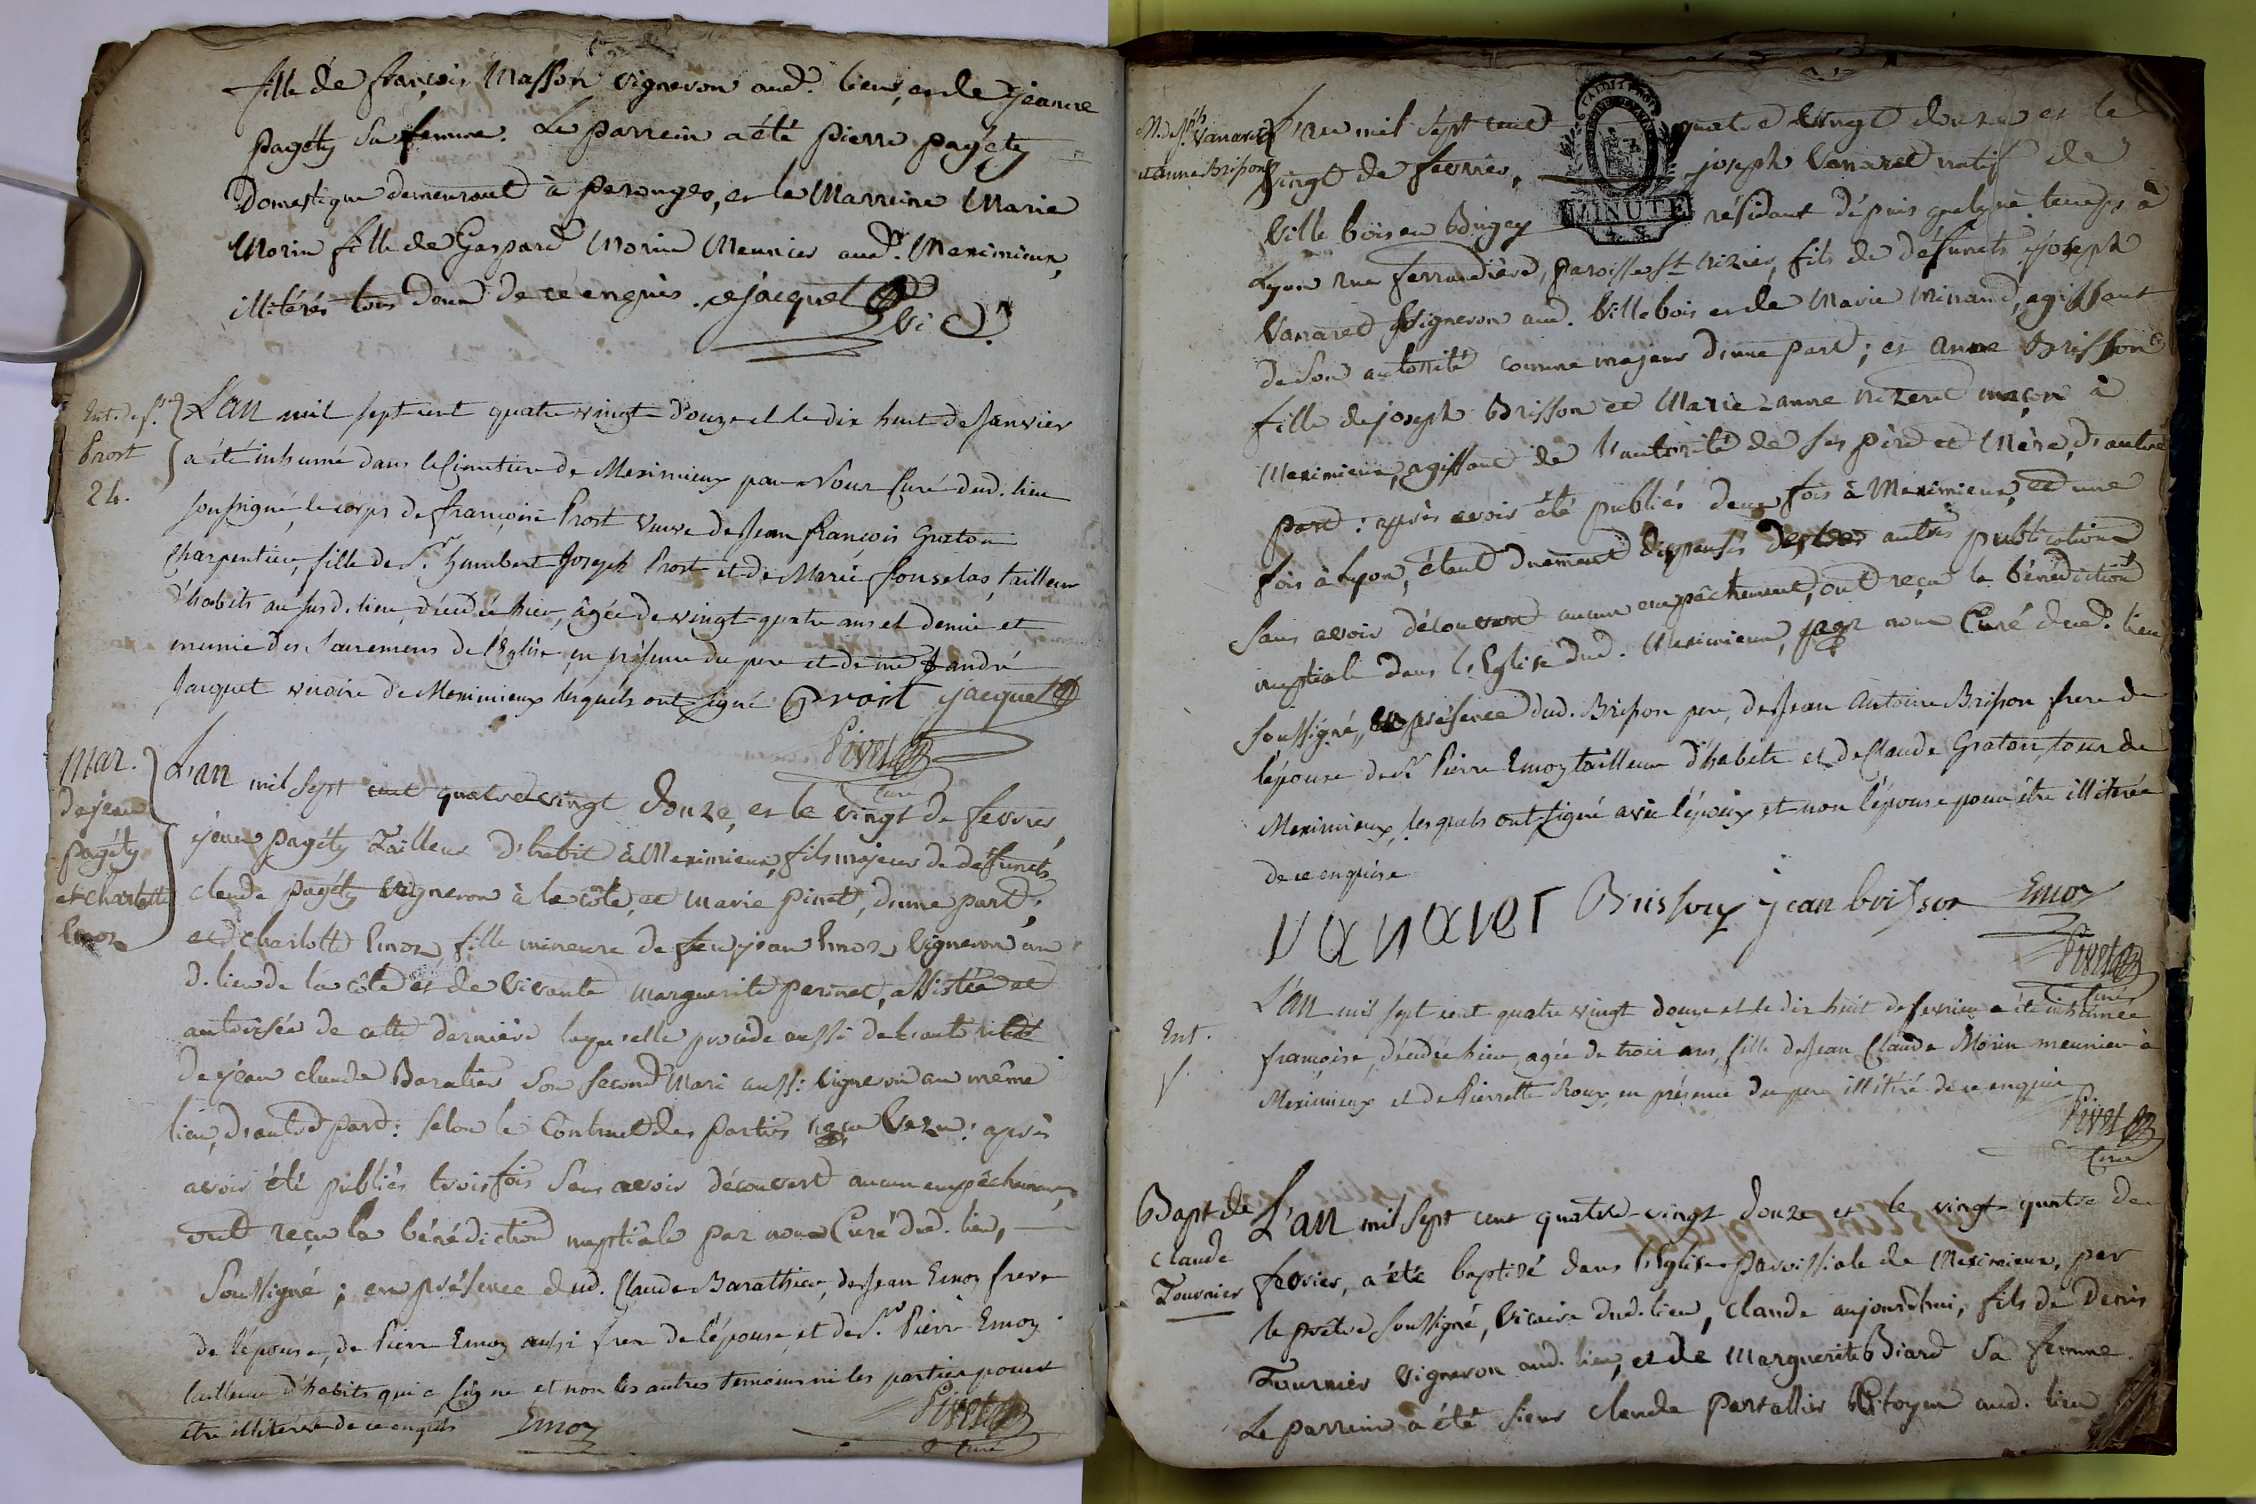 fille de françois Masson vigneron aud. lieu, et de jeanne
pagéty sa femme. Le parrein a été pierre pagéty
Domestique demeurant à perouges, et la Marreine Marie
Morin fille de Gaspard Morin Meunier aud. Meximieux,
illitérés tous deux de ce enquis. jacquet vic.
Ent. de f.se
Prost
24.
L'an mil sept cent quatre vingt douze et le dix huit de Janvier
a été inhumé dans le Cimetiere de Meximieux par Nous Curé dud. lieu
soussigné, le corps de françoise Prost veuve de Jean françois Graton
charpentier, fille de Sr. humbert Joseph Prost et de Marie tailleur
d'habits au susd. lieu, décédée hier, âgée de vingt quatre ans et demie et
munie des Sacremens de l'Eglise, en présence du pere et de me andré
Jacquet vicaire de Meximieux lesquels ont signé Prost jacquet
Pivet
curé
Mar.
de jean
pagéty
et charlotte
Emoz
L'an mil sept cent quatre vingt douze, et le vingt de fevrier,
jean pagéty Tailleur d'habit à Meximieux, fils majeur de défunts
claude pagéty vigneron à la côte, et Marie pinet, d'une part;
et charlotte Emoz, fille mineure de feu jean Emoz vigneron au
d. lieu de la côte et de vivante Marguerite perinet, assistée et
autorisée de cette derniere laquelle procède aussi de l'autorité
de jean claude Baratier son second Mari aussi vigneron au même
lieu, d'autre part: selon le Contract des parties reçu : après
avoir été publiés trois fois sans avoir découvert aucun empêchement,
ont reçu la bénédiction nuptiale par nous Curé dud. lieu,
Soussigné; en présence dud. Claude Barathier, de Jean Emoz frere
de l'épouse, de Pierre Emoz aussi frere de l'épouse, et de Sr. Pierre Emoz
tailleur d'habits qui a signé et non les autres temoins ni les parties pour
être illitérés de ce enquis Emoz
Pivet
curé
M. de jph. Vanaret
et anne Brisson
L'an mil sept cent quatre vingt douze et le
vingt de fevrier, joseph Vanaret natif de
MINUTE
Ville bois en Bugey résidant dépuis quelque temps à
Lyon rue ferrandière, paroisse St. nizier, fils de défunts joseph
Vanaret Vigneron aud. Villebois et de Marie Minand, agissant
de son autorité comme majeur d'une part; et anne Brisson
fille de joseph Brisson et Marie-anne nizeret maçon à
Meximieux, agissant de l'autorité de ses père et Mère, d'autre
part: après avoir été publiés deux fois à Meximieux, et une
fois à Lyon, étant duement dispensés des autres publications
sans avoir découvert aucun empêchement, ont reçu la bénédiction
nuptiale dans l'Eglise dud. Meximieux, par nous Curé dud. lieu
soussigné, en présence dud. Brisson pere, de Jean Antoine Brisson frere de
l'épouse de Sr. Pierre Emoz tailleur d'habits et de Claude Graton, tous de
Meximieux, lesquels ont signé avec l'époux et non l'épouse pour être illitérée
de ce enquise
vanaret Brisson jean brisson Emoz
Pivet
curé
Ent.
L'an mil sept cent quatre vingt douze et le dix huit de fevrier a été inhumée
françoise, décédée hier, agée de trois ans, fille de Jean Claude Morin meunier à
Meximieux et de Pierrette Roux, en présence du pere illitéré de ce enquis
Pivet
Curé
Bapt de
Claude
Tournier
L'an mil sept cent quatre vingt douze et le vingt quatre de
fevrier, a été baptisé dans l'Eglise paroissiale de Meximieux, par
le prêtre soussigné, Vicaire dud. lieu, Claude aujourd'hui, fils de Denis
Tournier Vigneron aud. lieu, et de Marguerite Biard sa femme.
Le parrein a été sieur claude Portallier Citoyen aud. lieu